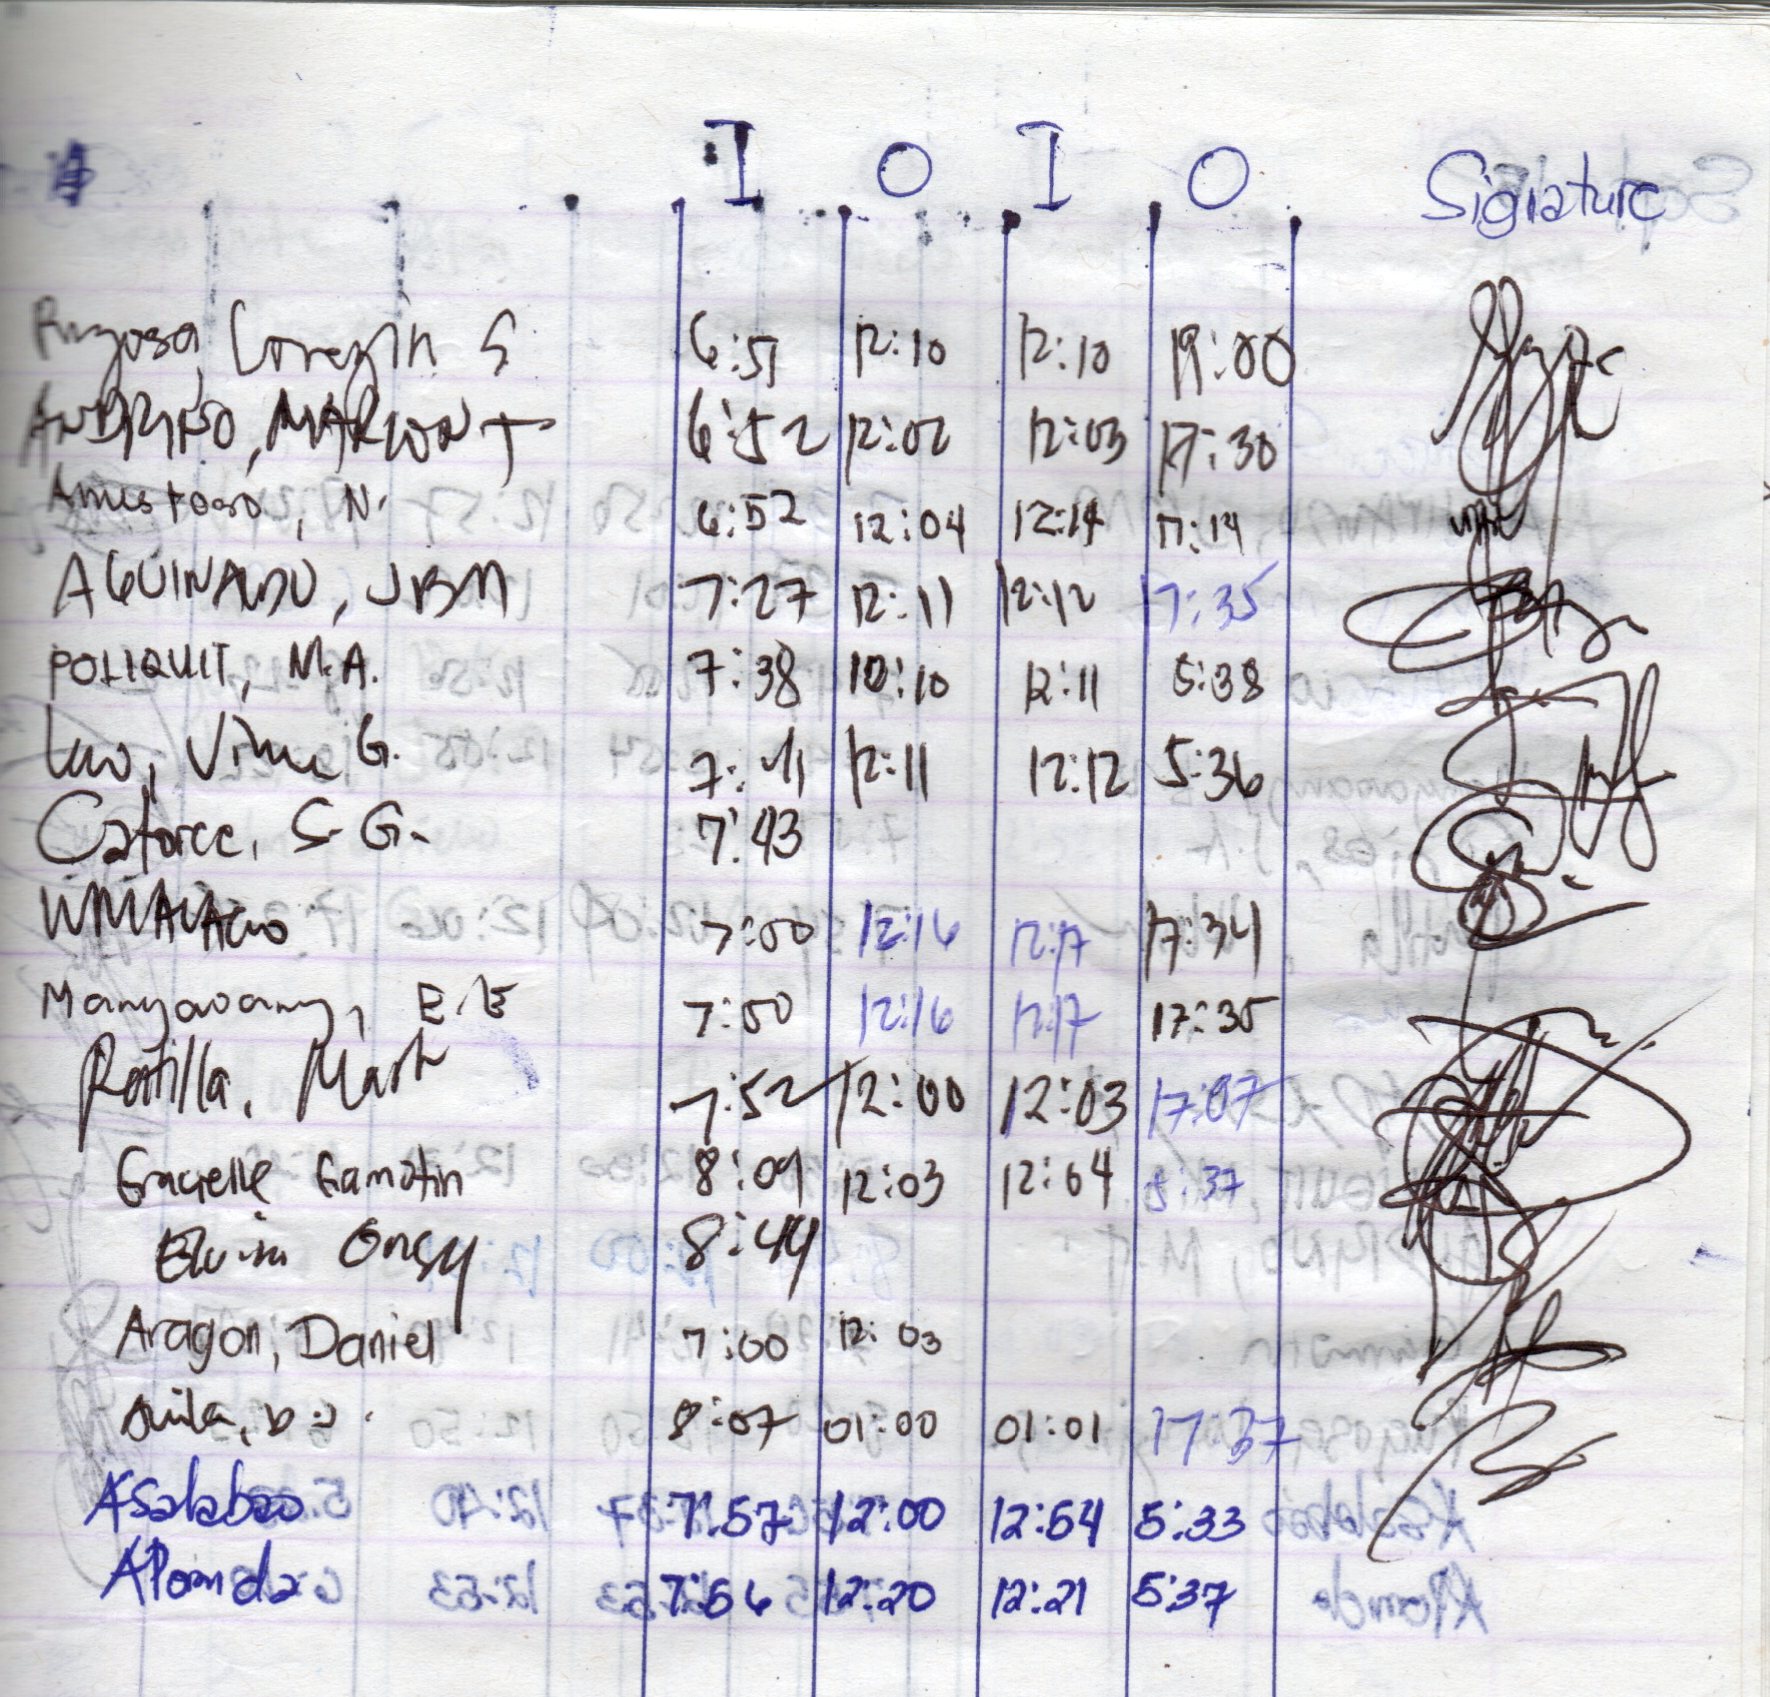 I O I O Signature
Lorezin S 6:51 12:10 12:10 19:00
ANDRINO, MARLON T 6:52 12:02 12:03 17:30
N. 6:52 12:04 12:14 17:14
AGUINALDO, JBM 7:27 12:11 12:12 17:35
POLIQUIT, M.A. 7:38 12:10 12:11 5:38
G. 7:41 12:11 12:12 5:36
Catorce, S.G. 7:43
7:50 12:16 12:17 17:34
E.E 7:50 12:16 12:17 17:35
Ratilla, Mark 7:52 12:00 12:03 17:07
Gracielle Gamotin 8:09 12:03 12:04 5:37
Ongy 8:44
Aragon, Daniel 7:00 12:03
8:07 01:00 01:01 17:37
Asalabao 7:57 12:00 12:54 5:33
Alomda 7:56 12:20 12:21 5:37